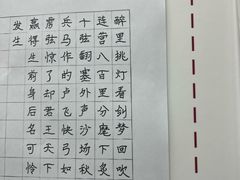 醉里挑灯看剑梦回吹
连营八百里分麾下炙
十弦翻塞外声沙场秋
兵马作的卢飞快弓如
雳弦惊了却君王天下
赢得生前身后名可怜
发生